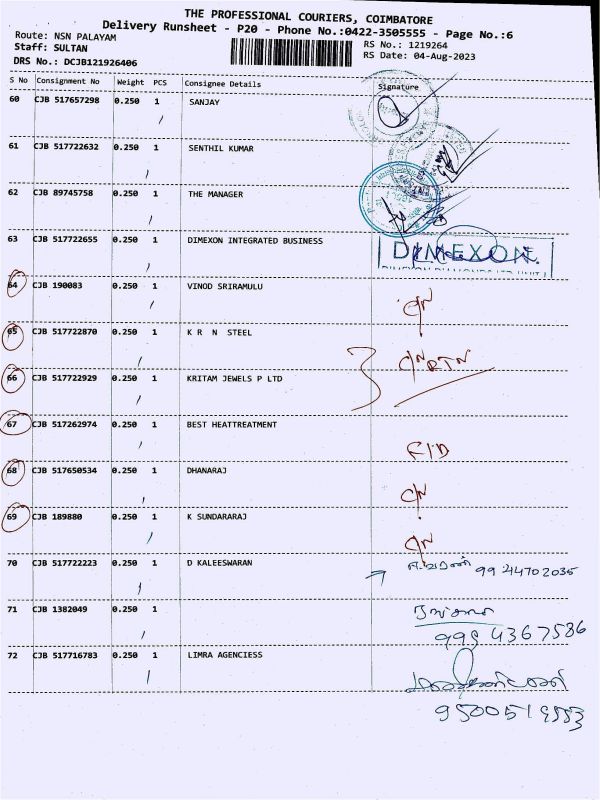 THE PROFESSIONAL COURIERS, COIMBATORE
Delivery Runsheet - P20 - Phone No.:0422-3505555 - Page No.:6
Route: NSN PALAYAM
Staff: SULTAN
DRS No.: DCJB121926406
RS No.: 1219264
RS Date: 04-Aug-2023
S No Consignment No Weight PCS Consignee Details Signature
60 CJB 517657298 0.250 1 SANJAY
61 CJB 517722632 0.250 1 SENTHIL KUMAR
62 CJB 89745758 0.250 1 THE MANAGER
63 CJB 517722655 0.250 1 DIMEXON INTEGRATED BUSINESS DIMEXON
64 CJB 190083 0.250 1 VINOD SRIRAMULU
65 CJB 517722870 0.250 1 K R N STEEL
66 CJB 517722929 0.250 1 KRITAM JEWELS P LTD
67 CJB 517262974 0.250 1 BEST HEATTREATMENT
68 CJB 517650534 0.250 1 DHANARAJ
69 CJB 189880 0.250 1 K SUNDARARAJ
70 CJB 517722223 0.250 1 D KALEESWARAN 9944702035
71 CJB 1382049 0.250 1
72 CJB 517716783 0.250 1 LIMRA AGENCIESS